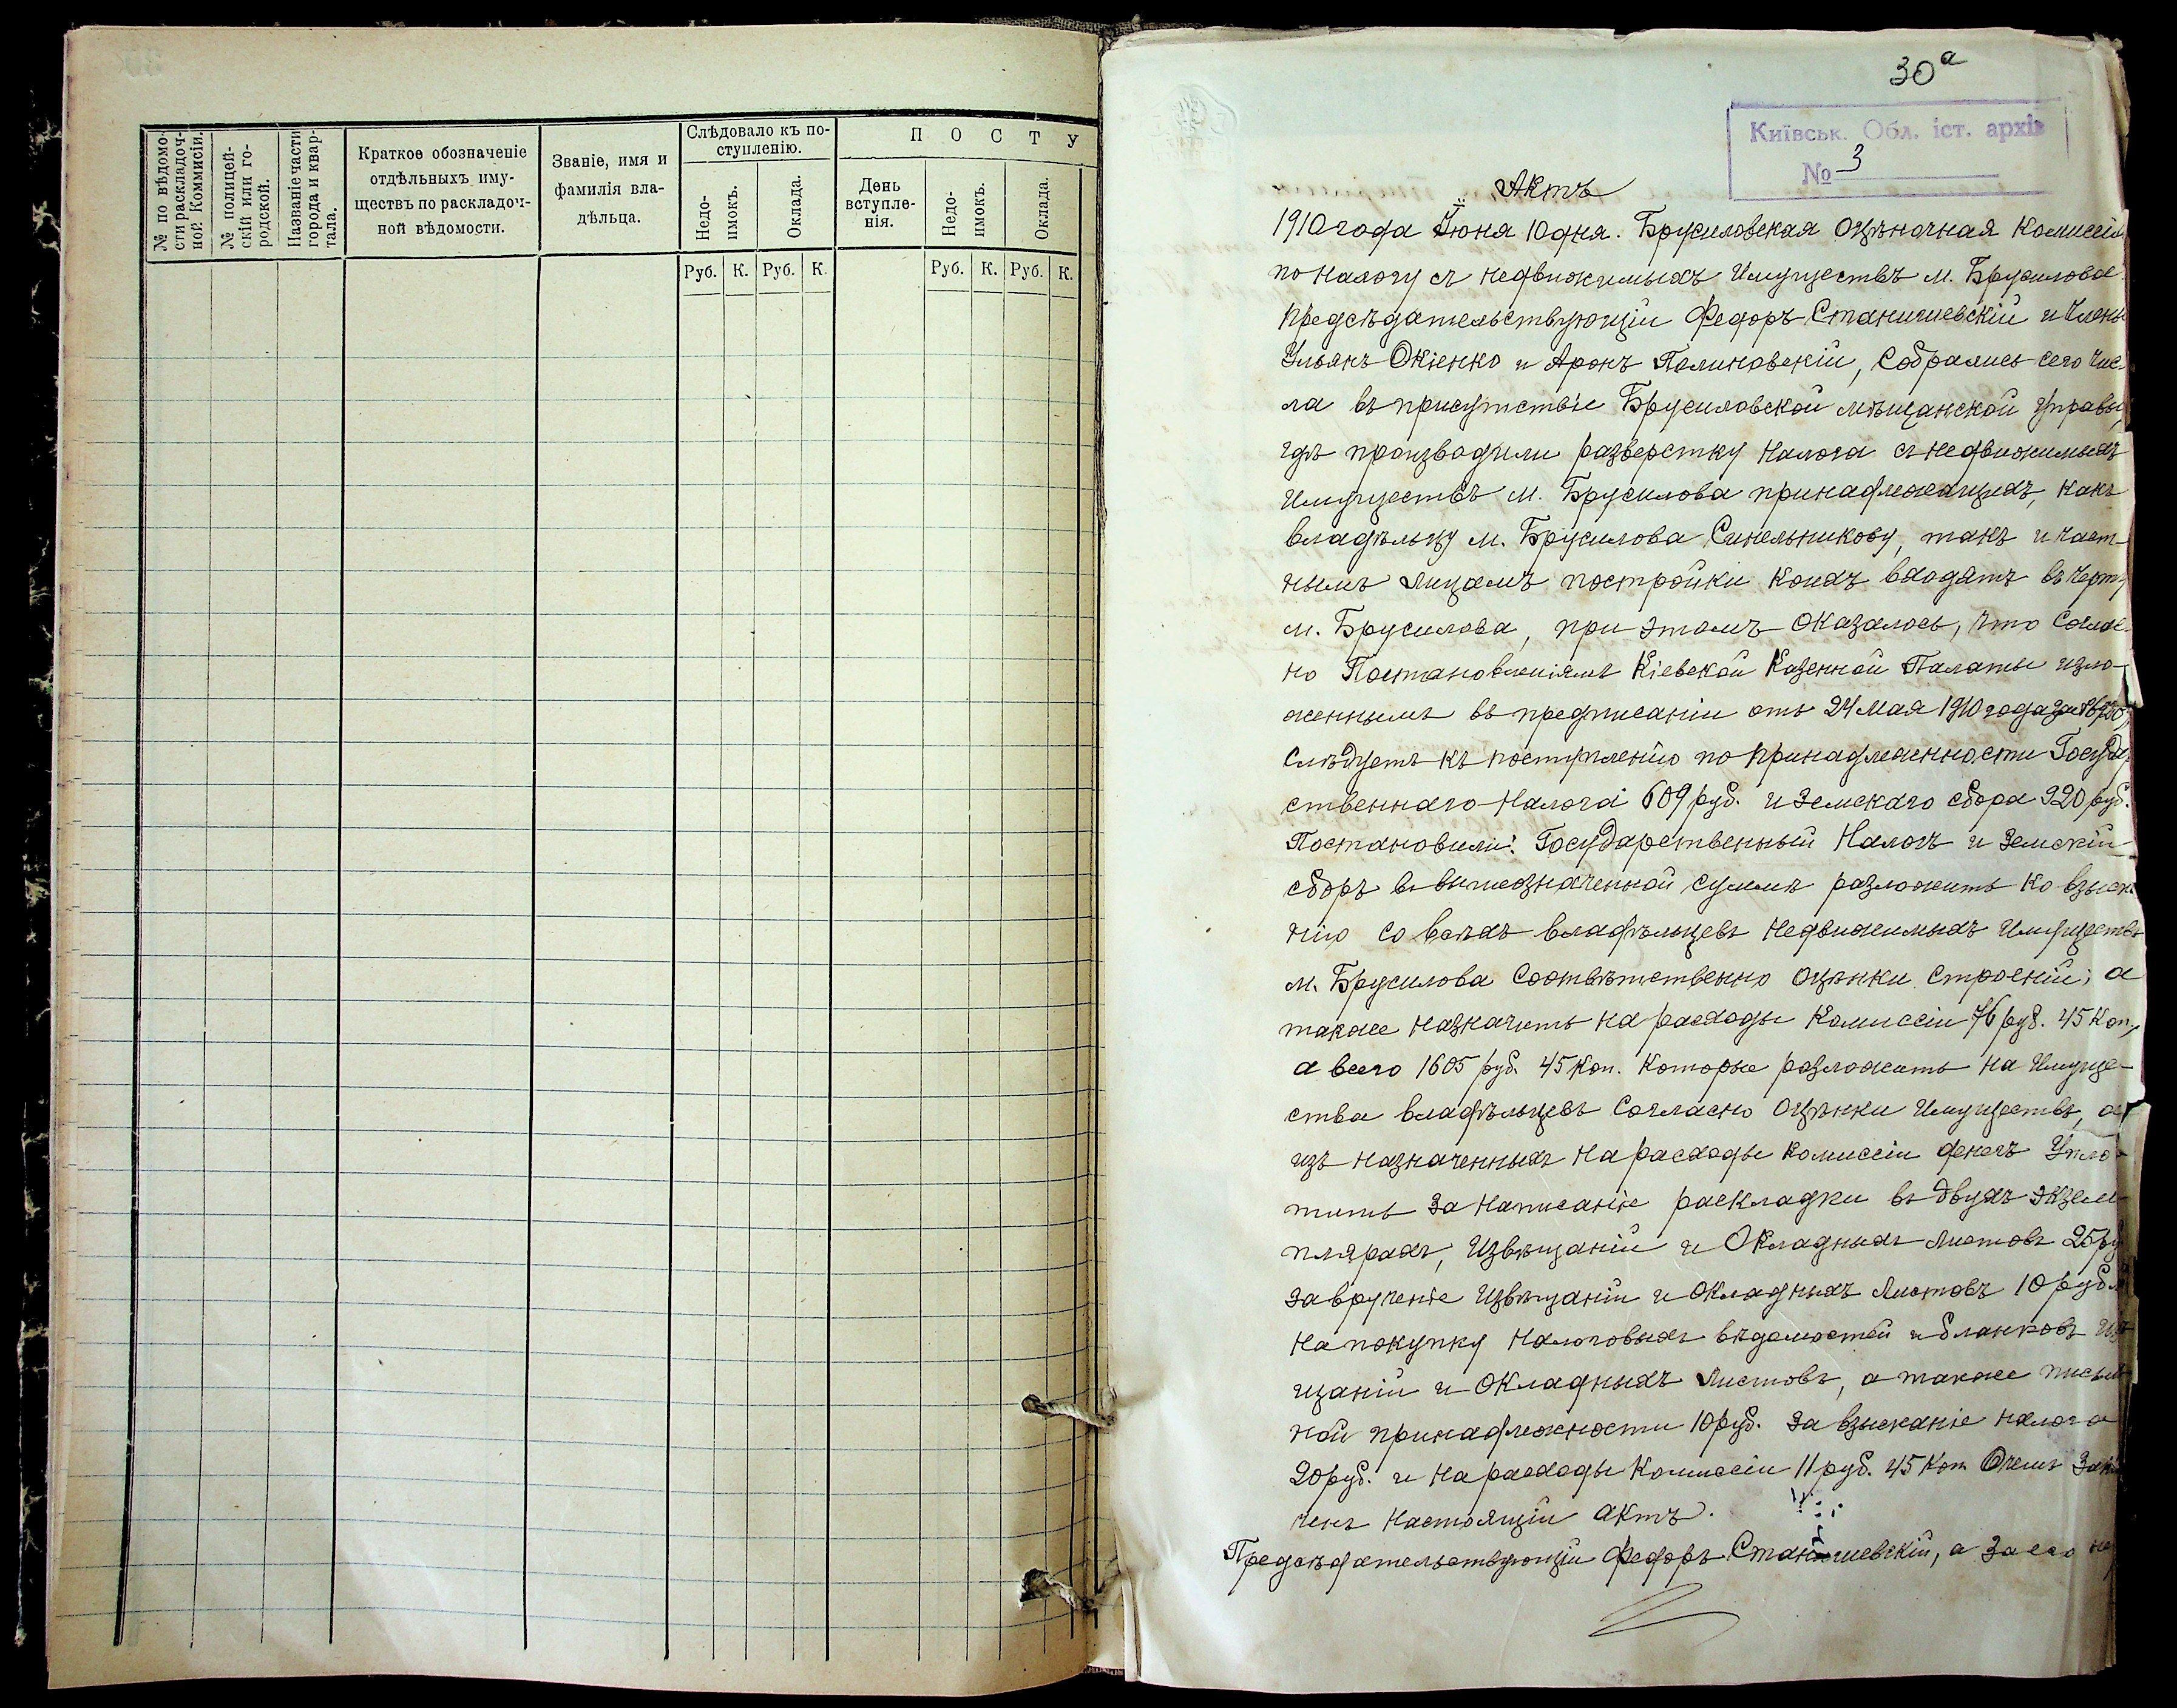 № по вѣдомо-
сти раскладоч-
ной Коммисіи.
№ полицей-
скій или го-
родской.
Названіе части
города и квар-
тала.
Краткое обозначеніе
отдѣльныхъ иму-
ществъ по раскладоч-
ной вѣдомости.
Званіе, имя и
фамилія вла-
дѣльца.
Слѣдовало къ по-
ступленію.
Недо-
имокъ.
Оклада.
П О С Т У
День
вступле-
нія.
Недо-
имокъ.
Оклада.
Руб. К. Руб. К. Руб. К. Руб. К.
30а
Київськ. Обл. іст. архів
№ 3
Актъ
1910 года Іюня 10 дня. Брусиловская Оцѣночная Комиссія
по налогу съ недвижимыхъ Имуществъ м. Брусилова
Предсѣдательствующій Федоръ Станишевскій и Члены
Ульянъ Окіенко и Аронъ Полиновскій, Собрались сего чис-
ла въ присутствіе Брусиловской мѣщанской Управы,
гдѣ производили разверстку Налога съ недвижимыхъ
Имуществъ м. Брусилова принадлежащихъ, какъ
владѣльцу м. Брусилова Синельникову, такъ и част-
нымъ лицамъ постройки коихъ входятъ въ черту
м. Брусилова, при этомъ оказалось, что Соглас-
но Постановленіямъ Кіевской Казенной Палаты изло-
женнымъ въ предписаніи отъ 24 Мая 1910 года за №
слѣдуетъ къ поступленію по принадлежности Государ-
ственнаго Налога 609 руб. и Земскаго сбора 920 руб.
Постановили: Государственный Налогъ и Земскій
сборъ въ вышеозначенной суммѣ разложить ко взыска-
нію со всѣхъ владѣльцевъ недвижимыхъ Имуществъ
м. Брусилова Соотвѣтственно Оцѣнки строеній; а
также назначить на расходы Комиссіи 76 руб. 45 Коп.,
а всего 1605 руб. 45 Коп. Которые разложить на Имуще-
ства владѣльцевъ Согласно Оцѣнки Имуществъ, а
изъ назначенныхъ на расходы Комиссіи денегъ Упла-
тить за написаніе раскладки въ двухъ экзем-
плярахъ, Извѣщаній и Окладныхъ листовъ 25 ру
за врученіе Извѣщаній и Окладныхъ Листовъ 10 рубл
на покупку Налоговыхъ вѣдомостей и бланковъ Извѣ
щаній и Окладныхъ Листовъ, а также письмен
ной принадлежности 10 руб. за взысканіе налога
20 руб. и на расходы Комиссіи 11 руб. 45 Коп. О чемъ Заклю
ченъ настоящій актъ.
Предсѣдательствующій Федоръ Станишевскій, а за его не